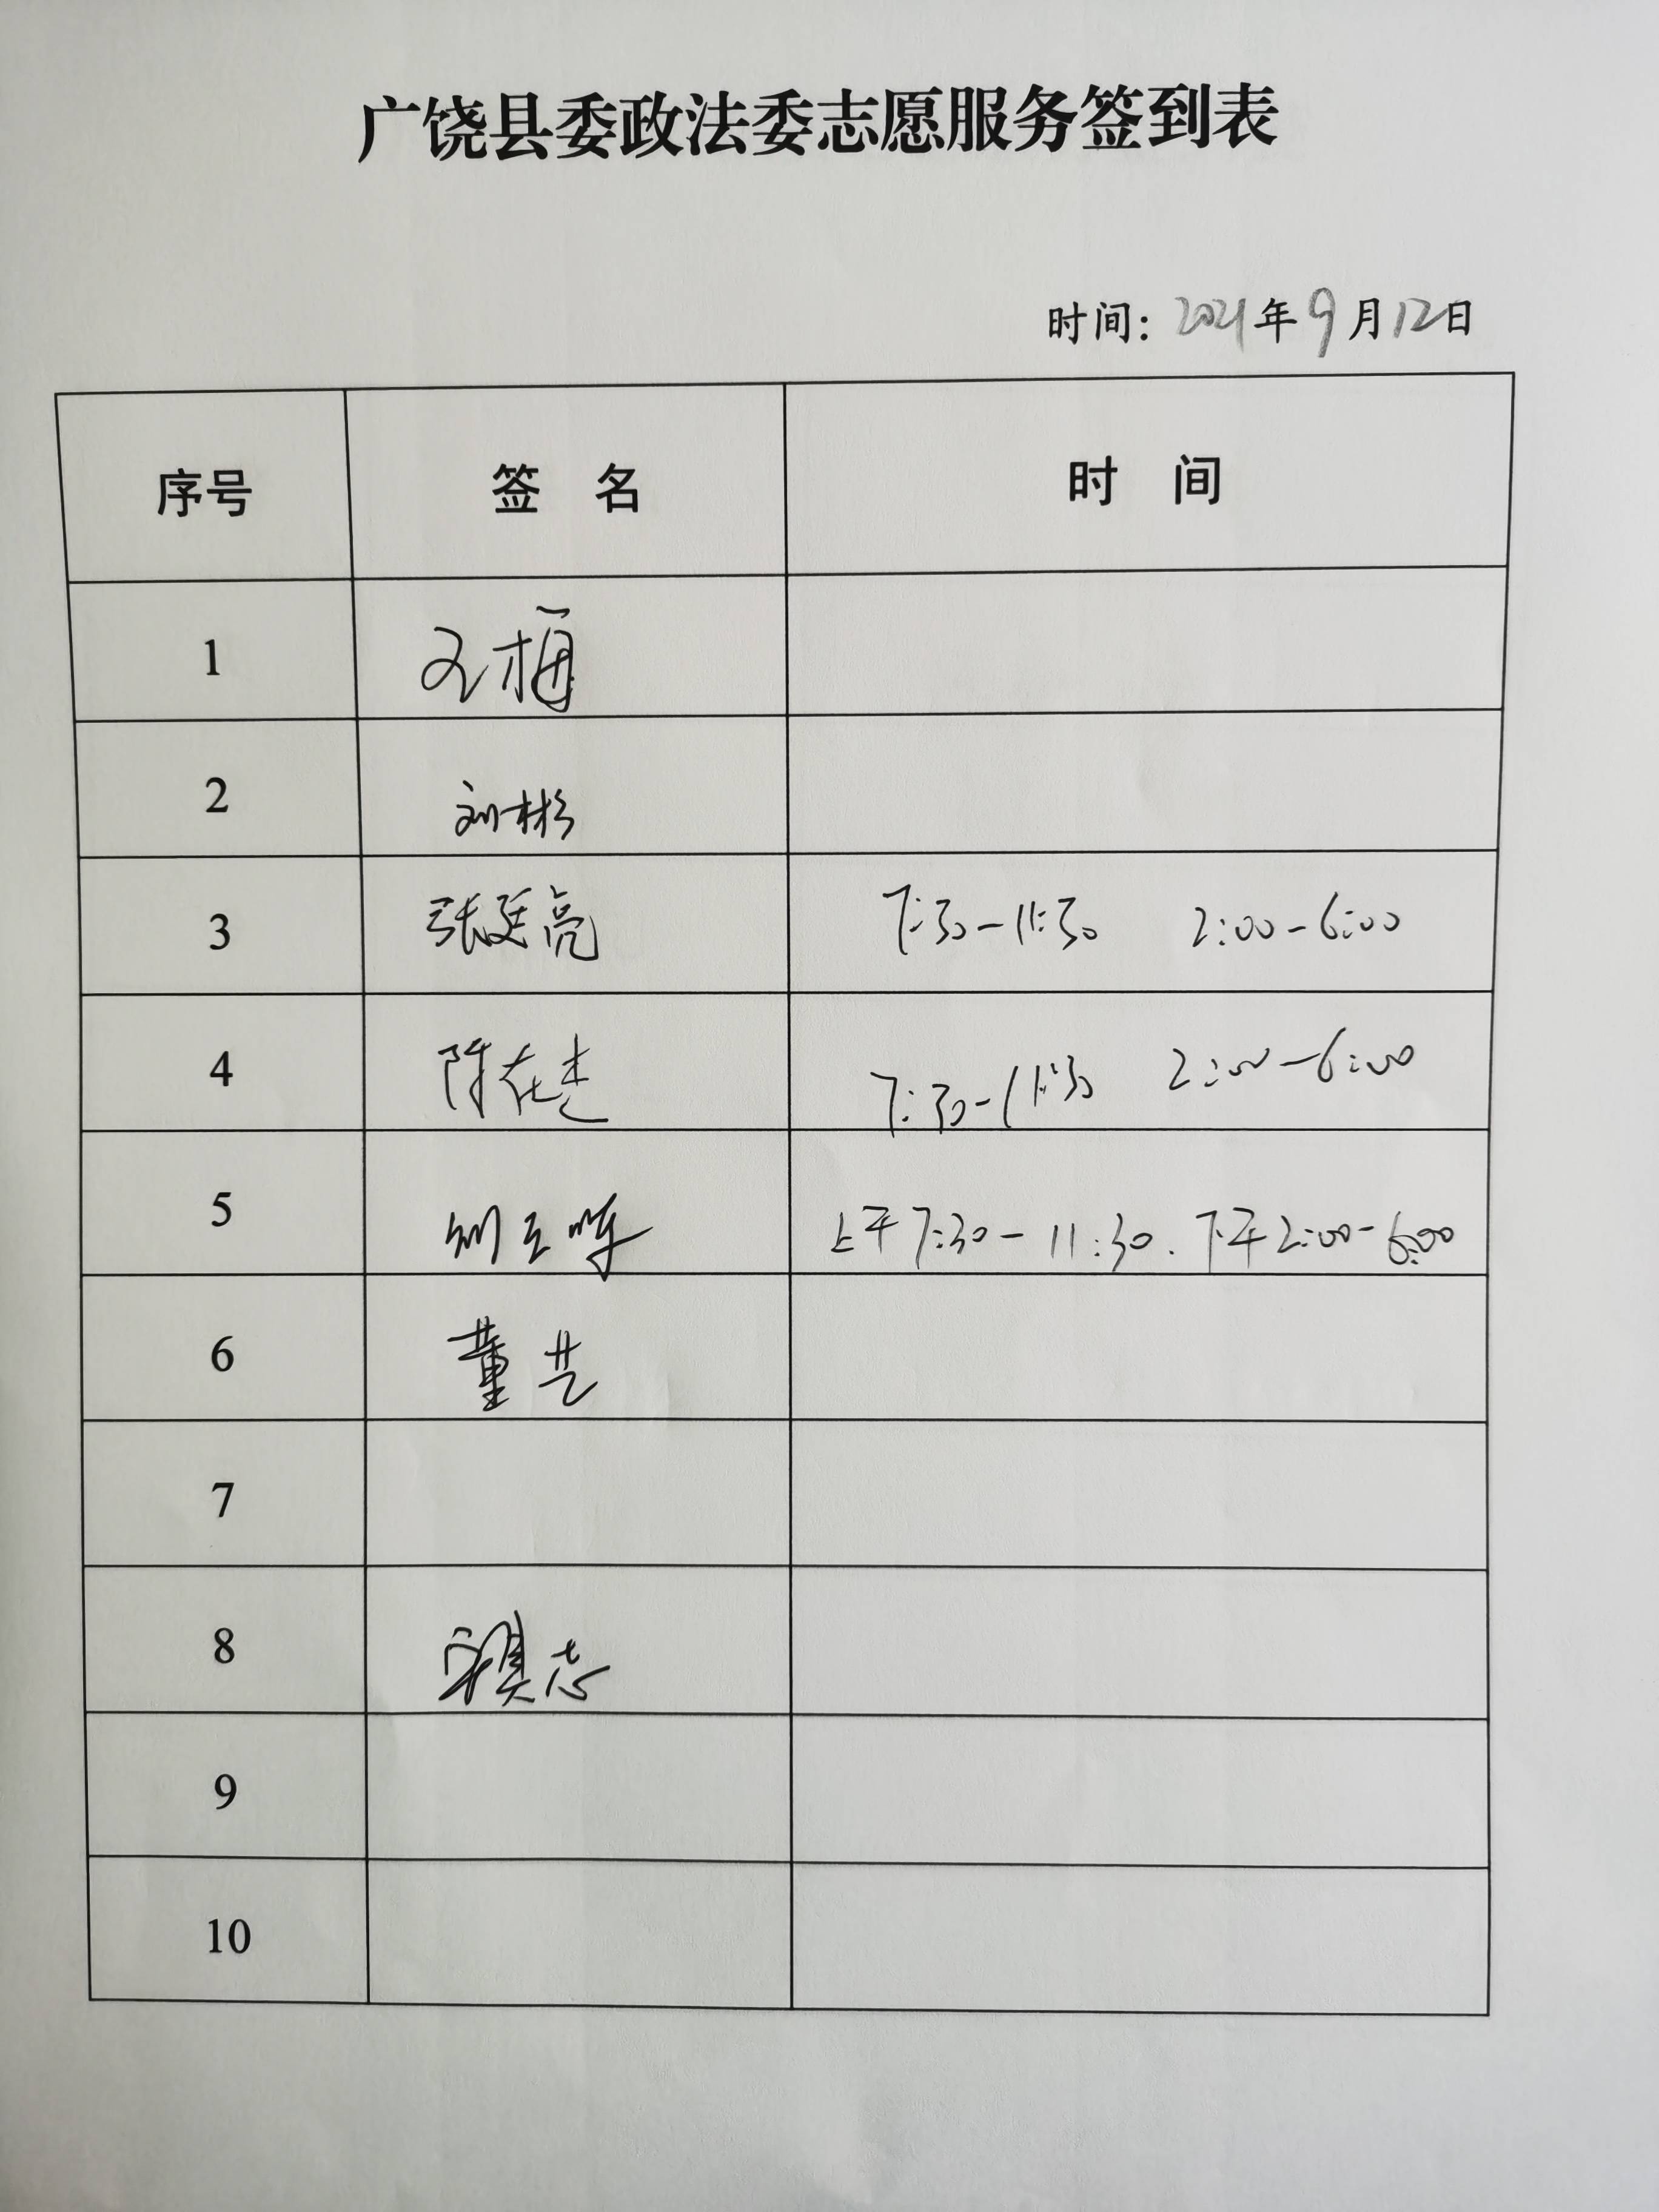 广饶县委政法委志愿服务签到表
时间: 2021年9月12日
序号 签 名 时 间
1
2 刘彬
3 张廷亮 7:30-11:30 2:00-6:00
4 陈在 7:30-11:30 2:00-6:00
5 刘 上午7:30-11:30. 下午2:00-6:00
6 董芸
7
8 志
9
10